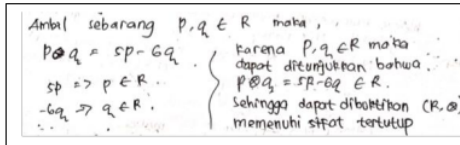 Ambil sebarang p, q ∈ R maka,
p⊗q = 5p-6q
5p => p ∈ R.
-6q => q ∈ R.
Karena p, q ∈ R maka
dapat ditunjukkan bahwa.
p⊗q = 5p-6q ∈ R.
Sehingga dapat dibuktikan (R, ⊗)
memenuhi sifat tertutup